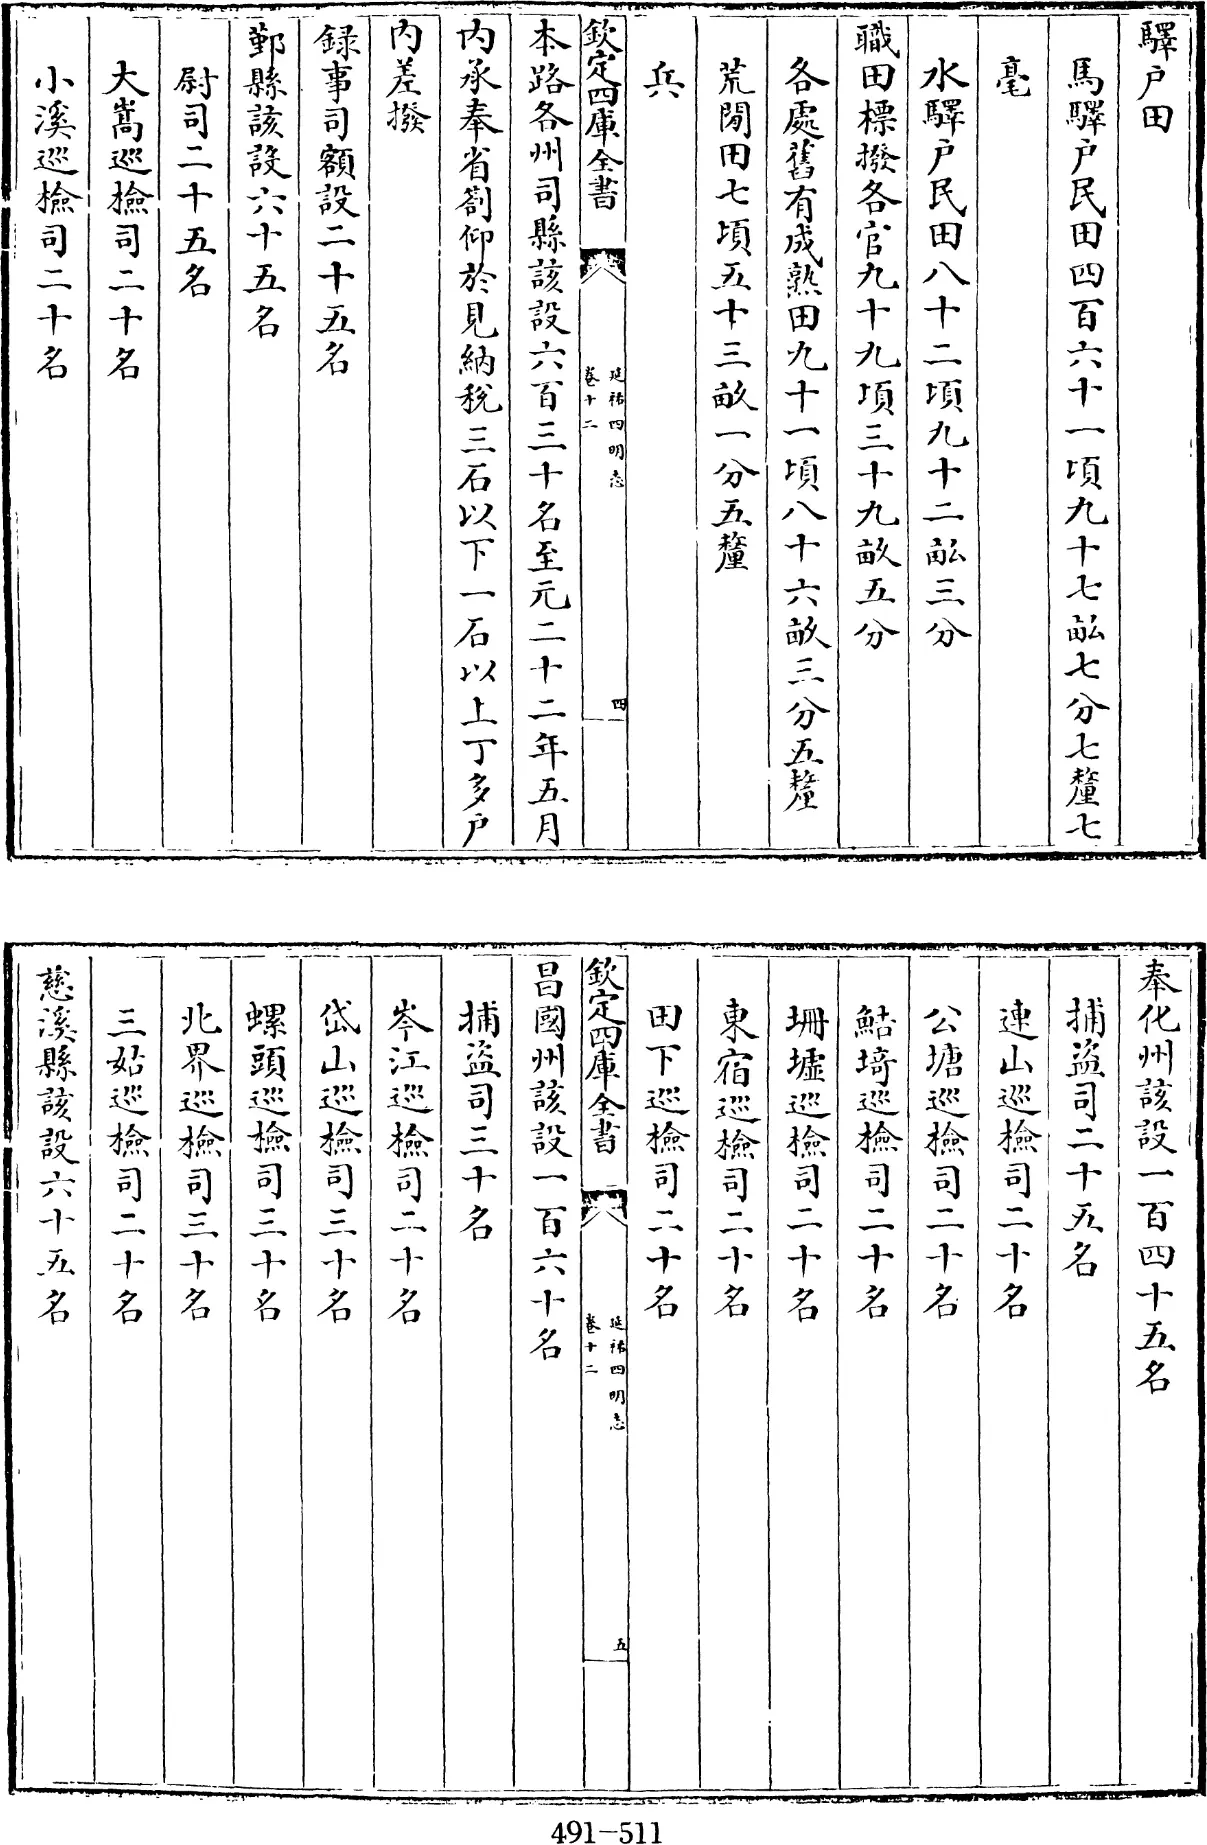 驛户田
馬驛户民田四百六十一頃九十七畝七分七釐七
毫
水驛户民田八十二頃九十二畝三分
職田標撥各官九十九頃三十九畝五分
各處舊有成熟田九十一頃八十六畝三分五釐
荒閒田七頃五十三畝一分五釐
兵
欽定四庫全書
延祐四明志
卷十二
四
本路各州司縣該設六百三十名至元二十二年五月
内承奉省劄仰於見納稅三石以下一石以上丁多户
内差撥
録事司額設二十五名
鄞縣該設六十五名
尉司二十五名
大嵩巡檢司二十名
小溪巡檢司二十名
奉化州該設一百四十五名
捕盜司二十五名
連山巡檢司二十名
公塘巡檢司二十名
鮚埼巡檢司二十名
珊墟巡檢司二十名
東宿巡檢司二十名
田下巡檢司二十名
欽定四庫全書
延祐四明志
卷十二
五
昌國州該設一百六十名
捕盜司三十名
岑江巡檢司二十名
岱山巡檢司三十名
螺頭巡檢司三十名
北界巡檢司三十名
三姑巡檢司二十名
慈溪縣該設六十五名
491-511